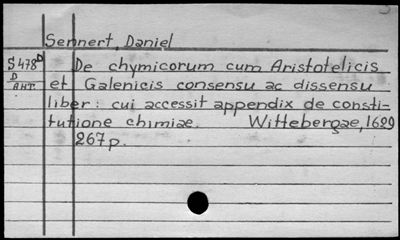 Sennert, Daniel
S478D De chymicorum cum Aristotelicis
D АНТ. et Galenicis consensu ac dissensu
liber: cui accessit appendix de consti-
tutione chimiae. Wittebergae, 1629
267p.